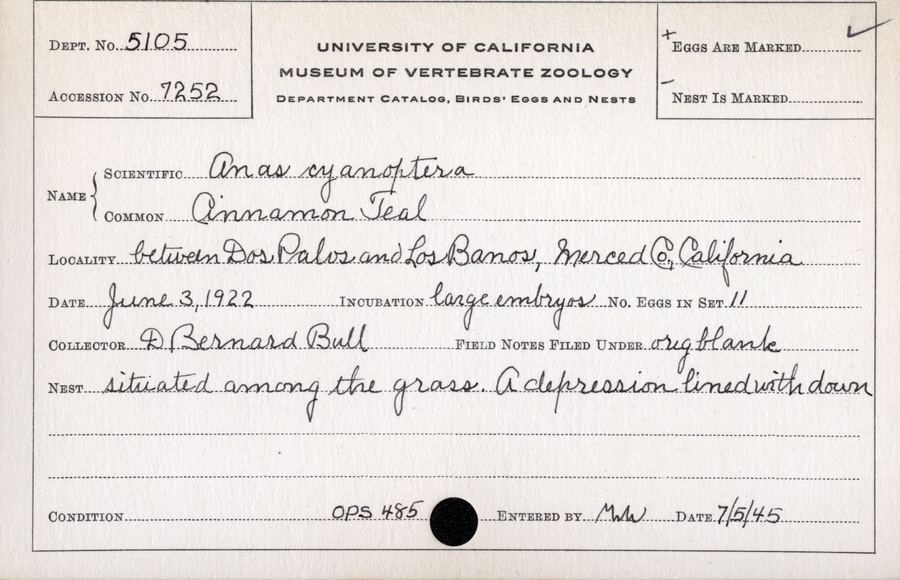 DEPT. No. 5105
ACCESSION No. 7252
UNIVERSITY OF CALIFORNIA
MUSEUM OF VERTEBRATE ZOOLOGY
DEPARTMENT CATALOG, BIRDS' EGGS AND NESTS
+ EGGS ARE MARKED ✓
- NEST IS MARKED
NAME { SCIENTIFIC Anas cyanoptera
COMMON Cinnamon Teal
LOCALITY between Dos Palos and Los Banos, Merced Co., California
DATE June 3, 1922 INCUBATION large embryos No. EGGS IN SET 11
COLLECTOR D Bernard Bull FIELD NOTES FILED UNDER orig blank
NEST situated among the grass. A depression lined with down
CONDITION OPS 485 ENTERED BY DATE 7/5/45